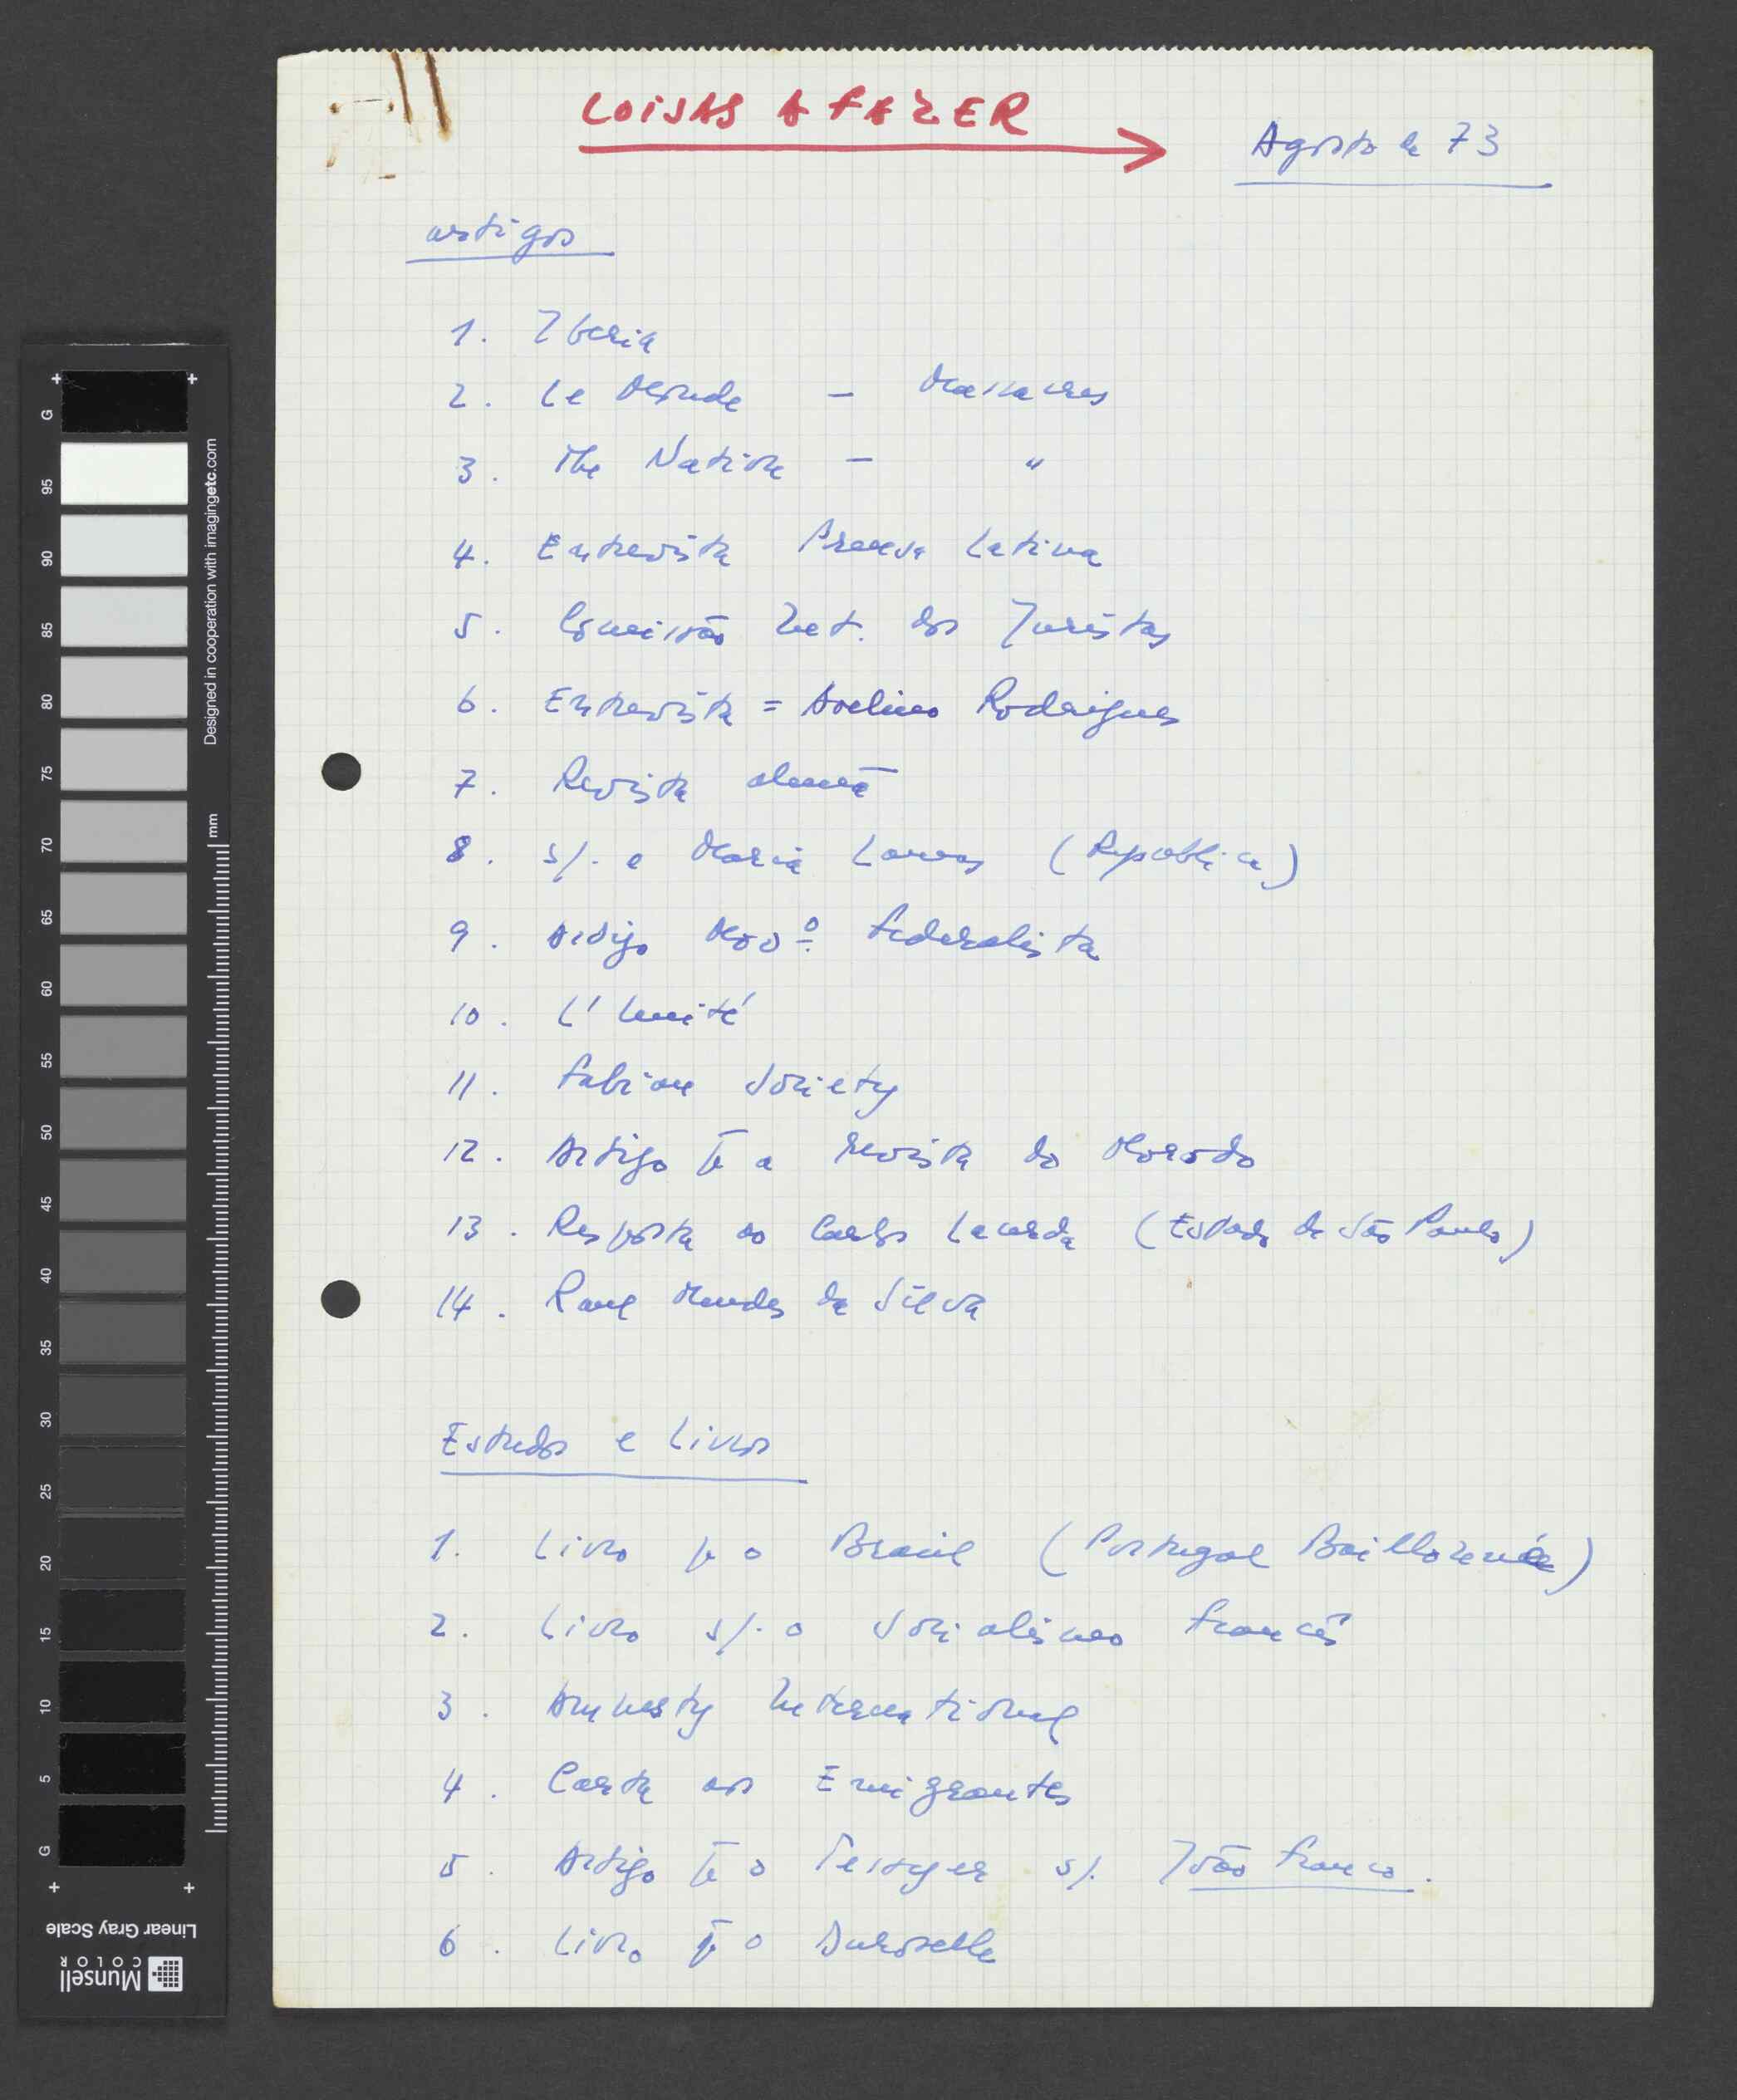 COISAS A FAZER
Agosto de 73
artigos
1. Iberia
2. Le Monde - Massacres
3. The Nation - "
4. Entrevista Prensa Latina
5. Comissão Int. dos Juristas
6. Entrevista = Avelino Rodrigues
7. Revista alemã
8. s/. a Maria Lamas (República)
9. Artigo Movº Federalista
10. L'Unité
11. Fabian Society
12. Artigo p a revista do
13. Resposta ao Carlos Lacerda (Estado de São Paulo)
14. Raul Mendes da Silva
Estudos e Livros
1. Livro p o Brasil (Portugal Baillonné)
2. Livro s/. o Socialismo francês
3. Amnesty International
4. Carta aos Emigrantes
5. Artigo p o Teissyer s/. João Franco.
6. Livro p o Duroselle
G
95
90
85
80
75
70
65
60
55
50
45
40
35
30
25
20
15
10
5
G
Designed in cooperation with imagingetc.com
mm
Linear Gray Scale
Munsell
COLOR